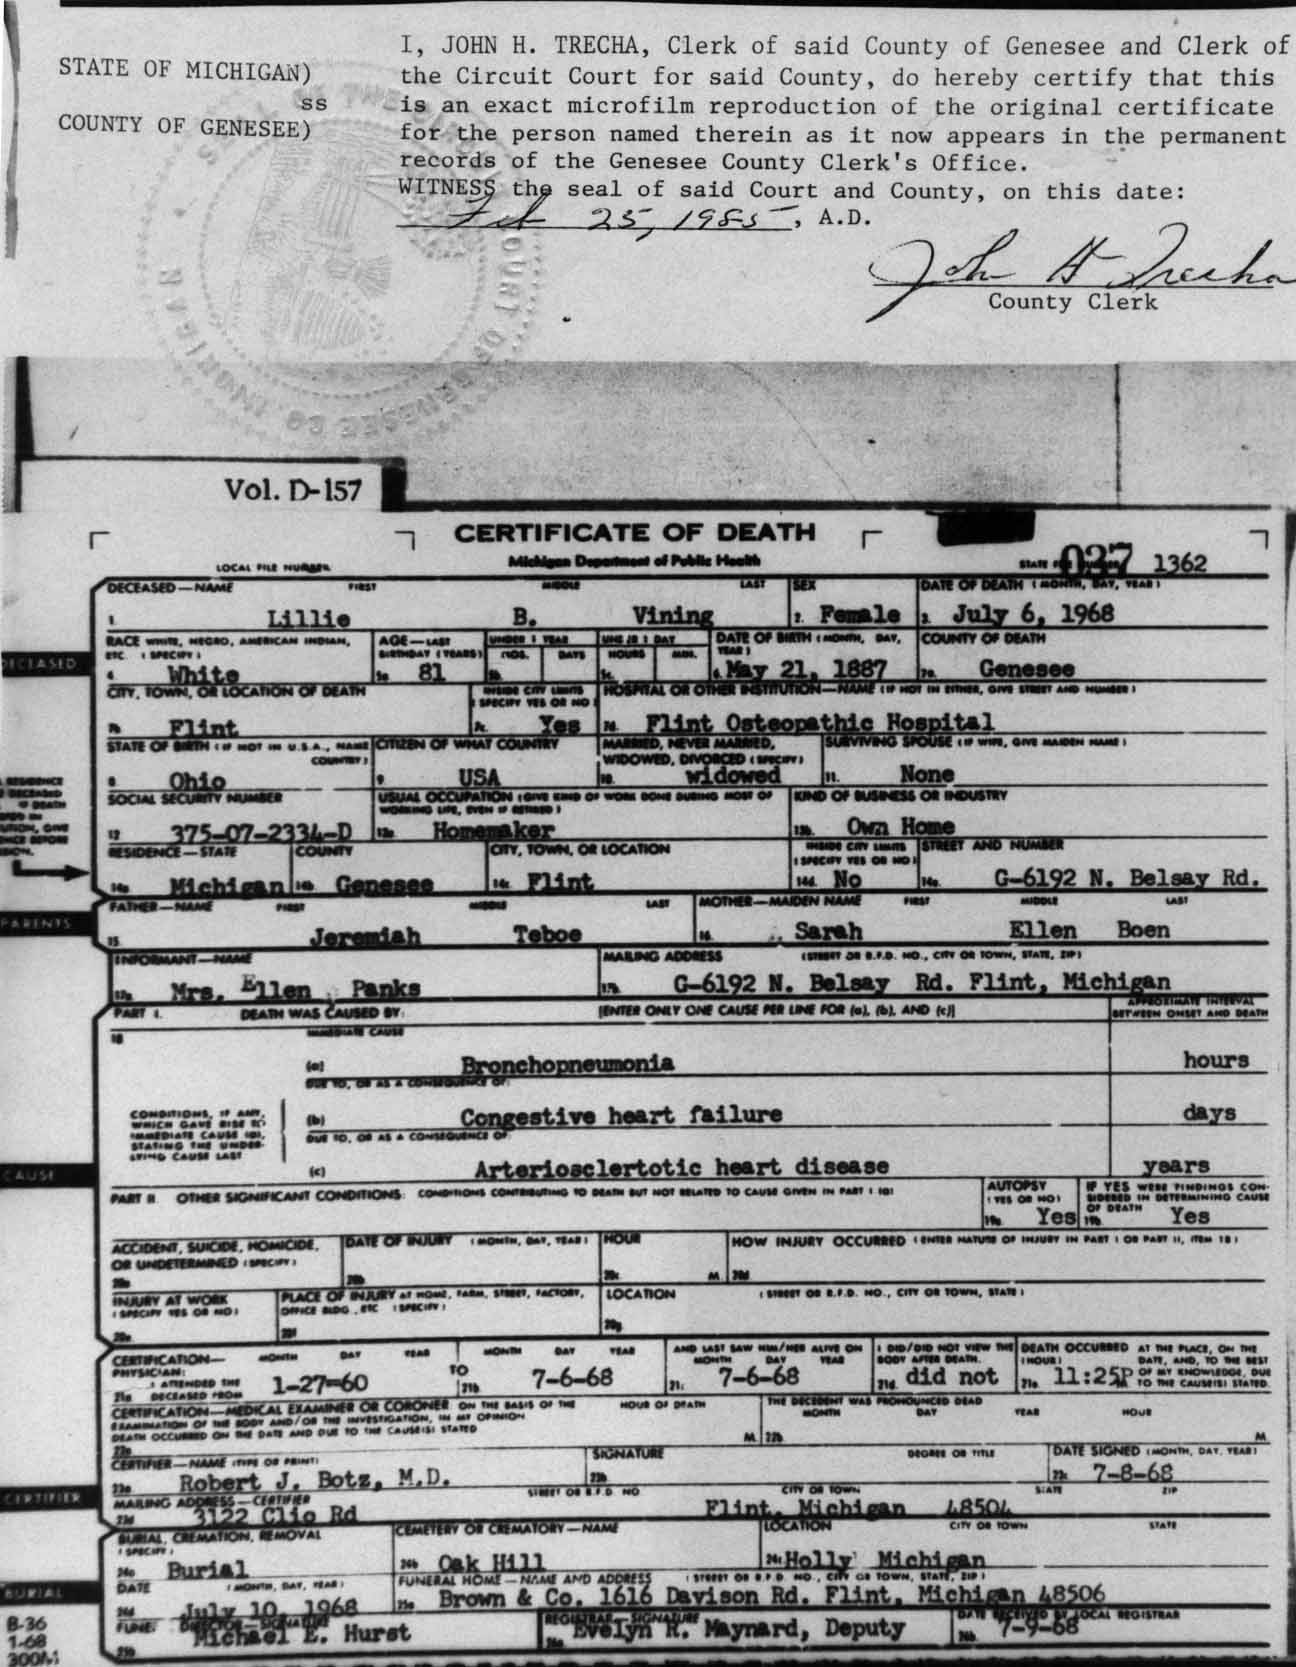 I, JOHN H. TRECHA, Clerk of said County of Genesee and Clerk of
STATE OF MICHIGAN) the Circuit Court for said County, do hereby certify that this
ss is an exact microfilm reproduction of the original certificate
COUNTY OF GENESEE) for the person named therein as it now appears in the permanent
records of the Genesee County Clerk's Office.
WITNESS the seal of said Court and County, on this date:
Feb 25, 1985, A.D.
John H Trecha
County Clerk
Vol. D-157
CERTIFICATE OF DEATH
Michigan Department of Public Health
LOCAL FILE NUMBER STATE 037 1362
DECEASED—NAME FIRST MIDDLE LAST SEX DATE OF DEATH (MONTH, DAY, YEAR)
1. Lillie B. Vining 2. Female 3. July 6, 1968
RACE WHITE, NEGRO, AMERICAN INDIAN, ETC. (SPECIFY) AGE—LAST BIRTHDAY (YEARS) UNDER 1 YEAR MOS. DAYS UNDER 1 DAY HOURS MIN. DATE OF BIRTH (MONTH, DAY, YEAR) COUNTY OF DEATH
DECEASED
4. White 5a 81 5b. 5c. 6. May 21, 1887 7a. Genesee
CITY, TOWN, OR LOCATION OF DEATH INSIDE CITY LIMITS (SPECIFY YES OR NO) HOSPITAL OR OTHER INSTITUTION—NAME (IF NOT IN EITHER, GIVE STREET AND NUMBER)
7b Flint 7c. Yes 7d. Flint Osteopathic Hospital
STATE OF BIRTH (IF NOT IN U.S.A., NAME COUNTRY) CITIZEN OF WHAT COUNTRY MARRIED, NEVER MARRIED, WIDOWED, DIVORCED (SPECIFY) SURVIVING SPOUSE (IF WIFE, GIVE MAIDEN NAME)
8 Ohio 9. USA 10. widowed 11. None
SOCIAL SECURITY NUMBER USUAL OCCUPATION (GIVE KIND OF WORK DONE DURING MOST OF WORKING LIFE, EVEN IF RETIRED) KIND OF BUSINESS OR INDUSTRY
12 375-07-2334-D 13a Homemaker 13b. Own Home
RESIDENCE—STATE COUNTY CITY, TOWN, OR LOCATION INSIDE CITY LIMITS (SPECIFY YES OR NO) STREET AND NUMBER
14a Michigan 14b Genesee 14c Flint 14d. No 14e. G-6192 N. Belsay Rd.
FATHER—NAME FIRST MIDDLE LAST MOTHER—MAIDEN NAME FIRST MIDDLE LAST
PARENTS
15. Jeremiah Teboe 16. Sarah Ellen Boen
INFORMANT—NAME MAILING ADDRESS (STREET OR R.F.D. NO., CITY OR TOWN, STATE, ZIP)
17a Mrs. Ellen Panks 17b. G-6192 N. Belsay Rd. Flint, Michigan
PART I. DEATH WAS CAUSED BY: [ENTER ONLY ONE CAUSE PER LINE FOR (a), (b), AND (c)] APPROXIMATE INTERVAL BETWEEN ONSET AND DEATH
18 IMMEDIATE CAUSE
(a) Bronchopneumonia hours
DUE TO, OR AS A CONSEQUENCE OF:
CONDITIONS, IF ANY, WHICH GAVE RISE TO IMMEDIATE CAUSE (a), STATING THE UNDERLYING CAUSE LAST
(b) Congestive heart failure days
DUE TO, OR AS A CONSEQUENCE OF:
CAUSE
(c) Arteriosclertotic heart disease years
PART II. OTHER SIGNIFICANT CONDITIONS: CONDITIONS CONTRIBUTING TO DEATH BUT NOT RELATED TO CAUSE GIVEN IN PART I (a) AUTOPSY (YES OR NO) IF YES WERE FINDINGS CONSIDERED IN DETERMINING CAUSE OF DEATH
19a. Yes 19b. Yes
ACCIDENT, SUICIDE, HOMICIDE, OR UNDETERMINED (SPECIFY) DATE OF INJURY (MONTH, DAY, YEAR) HOUR HOW INJURY OCCURRED (ENTER NATURE OF INJURY IN PART I OR PART II, ITEM 18)
20a 20b 20c M. 20d
INJURY AT WORK (SPECIFY YES OR NO) PLACE OF INJURY AT HOME, FARM, STREET, FACTORY, OFFICE BLDG., ETC. (SPECIFY) LOCATION (STREET OR R.F.D. NO., CITY OR TOWN, STATE)
20e 20f 20g
CERTIFICATION—PHYSICIAN: MONTH DAY YEAR TO MONTH DAY YEAR AND LAST SAW HIM/HER ALIVE ON MONTH DAY YEAR I DID/DID NOT VIEW THE BODY AFTER DEATH. DEATH OCCURRED (HOUR) AT THE PLACE, ON THE DATE, AND, TO THE BEST OF MY KNOWLEDGE, DUE TO THE CAUSE(S) STATED.
21a I ATTENDED THE DECEASED FROM 1-27-60 21b 7-6-68 21c 7-6-68 21d. did not 21e. 11:25P M
CERTIFICATION—MEDICAL EXAMINER OR CORONER ON THE BASIS OF THE EXAMINATION OF THE BODY AND/OR THE INVESTIGATION, IN MY OPINION DEATH OCCURRED ON THE DATE AND DUE TO THE CAUSE(S) STATED HOUR OF DEATH THE DECEDENT WAS PRONOUNCED DEAD MONTH DAY YEAR HOUR
22a M. 22b. M
CERTIFIER—NAME (TYPE OR PRINT) SIGNATURE DEGREE OR TITLE DATE SIGNED (MONTH, DAY, YEAR)
CERTIFIER
23a Robert J. Botz, M.D. 23b 23c 7-8-68
MAILING ADDRESS—CERTIFIER STREET OR R.F.D. NO CITY OR TOWN STATE ZIP
23d 3122 Clio Rd Flint, Michigan 48504
BURIAL, CREMATION, REMOVAL (SPECIFY) CEMETERY OR CREMATORY—NAME LOCATION CITY OR TOWN STATE
24a Burial 24b Oak Hill 24c Holly Michigan
BURIAL
DATE (MONTH, DAY, YEAR) FUNERAL HOME—NAME AND ADDRESS (STREET OR R.F.D. NO., CITY OR TOWN, STATE, ZIP)
24d July 10, 1968 25a Brown & Co. 1616 Davison Rd. Flint, Michigan 48506
B-36 DIRECTOR—SIGNATURE REGISTRAR—SIGNATURE DATE RECEIVED BY LOCAL REGISTRAR
1-68 25b Michael E. Hurst 26a Evelyn R. Maynard, Deputy 26b 7-9-68
300M